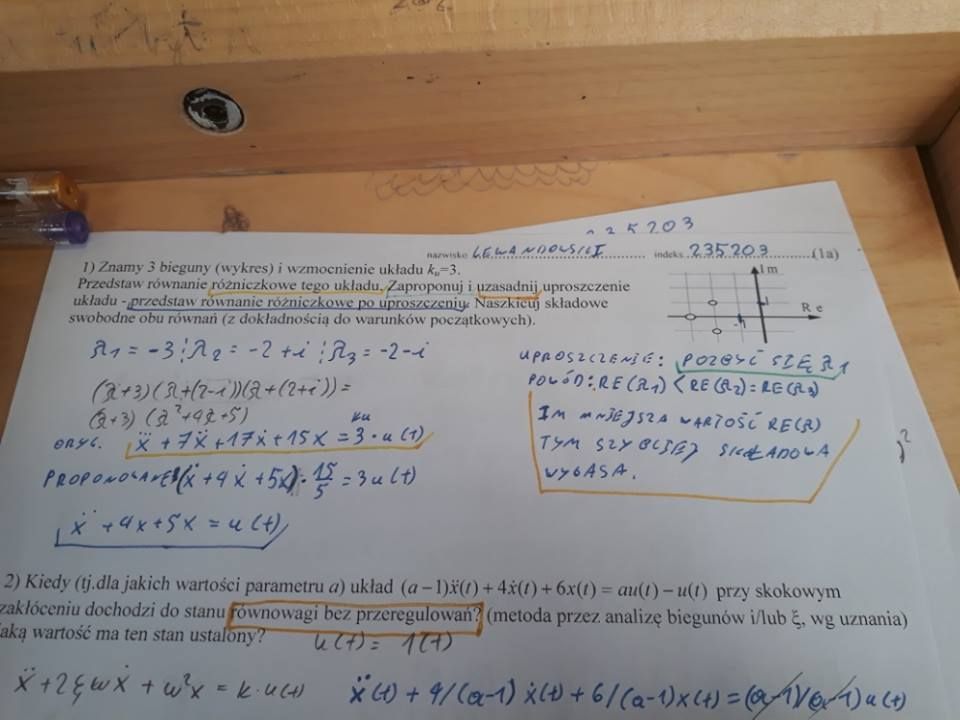 235203
nazwisko LEWANDOWSKI indeks 235203 (1a)
1) Znamy 3 bieguny (wykres) i wzmocnienie układu kᵤ=3.
Przedstaw równanie różniczkowe tego układu. Zaproponuj i uzasadnij uproszczenie
układu - przedstaw równanie różniczkowe po uproszczeniu. Naszkicuj składowe
swobodne obu równań (z dokładnością do warunków początkowych).
Im
Re
-1
λ1 = -3; λ2 = -2+i; λ3 = -2-i
(λ+3)(λ+(2-i))(λ+(2+i))=
(λ+3)(λ²+4λ+5)
ku
ORYG. ẍ + 7ẍ + 17ẋ + 15x = 3·u(t)
PROPONOWANE (ẍ + 4ẋ + 5x)·15/5 = 3u(t)
ẍ + 4x + 5x = u(t)
UPROSZCZENIE: POZBYĆ SIĘ λ1
POWÓD: RE(λ1) < RE(λ2) = RE(λ3)
IM MNIEJSZA WARTOŚĆ RE(λ)
TYM SZYBCIEJ SKŁADOWA
WYGASA.
2) Kiedy (tj.dla jakich wartości parametru a) układ (a−1)ẍ(t) + 4ẋ(t) + 6x(t) = au(t) − u(t) przy skokowym
zakłóceniu dochodzi do stanu równowagi bez przeregulowań? (metoda przez analizę biegunów i/lub ξ, wg uznania)
Jaką wartość ma ten stan ustalony?
u(t) = 1(t)
ẍ + 2ξωẋ + ω²x = k·u(t)
ẍ(t) + 4/(a-1) ẋ(t) + 6/(a-1)x(t) = (a-1)/(a-1)u(t)